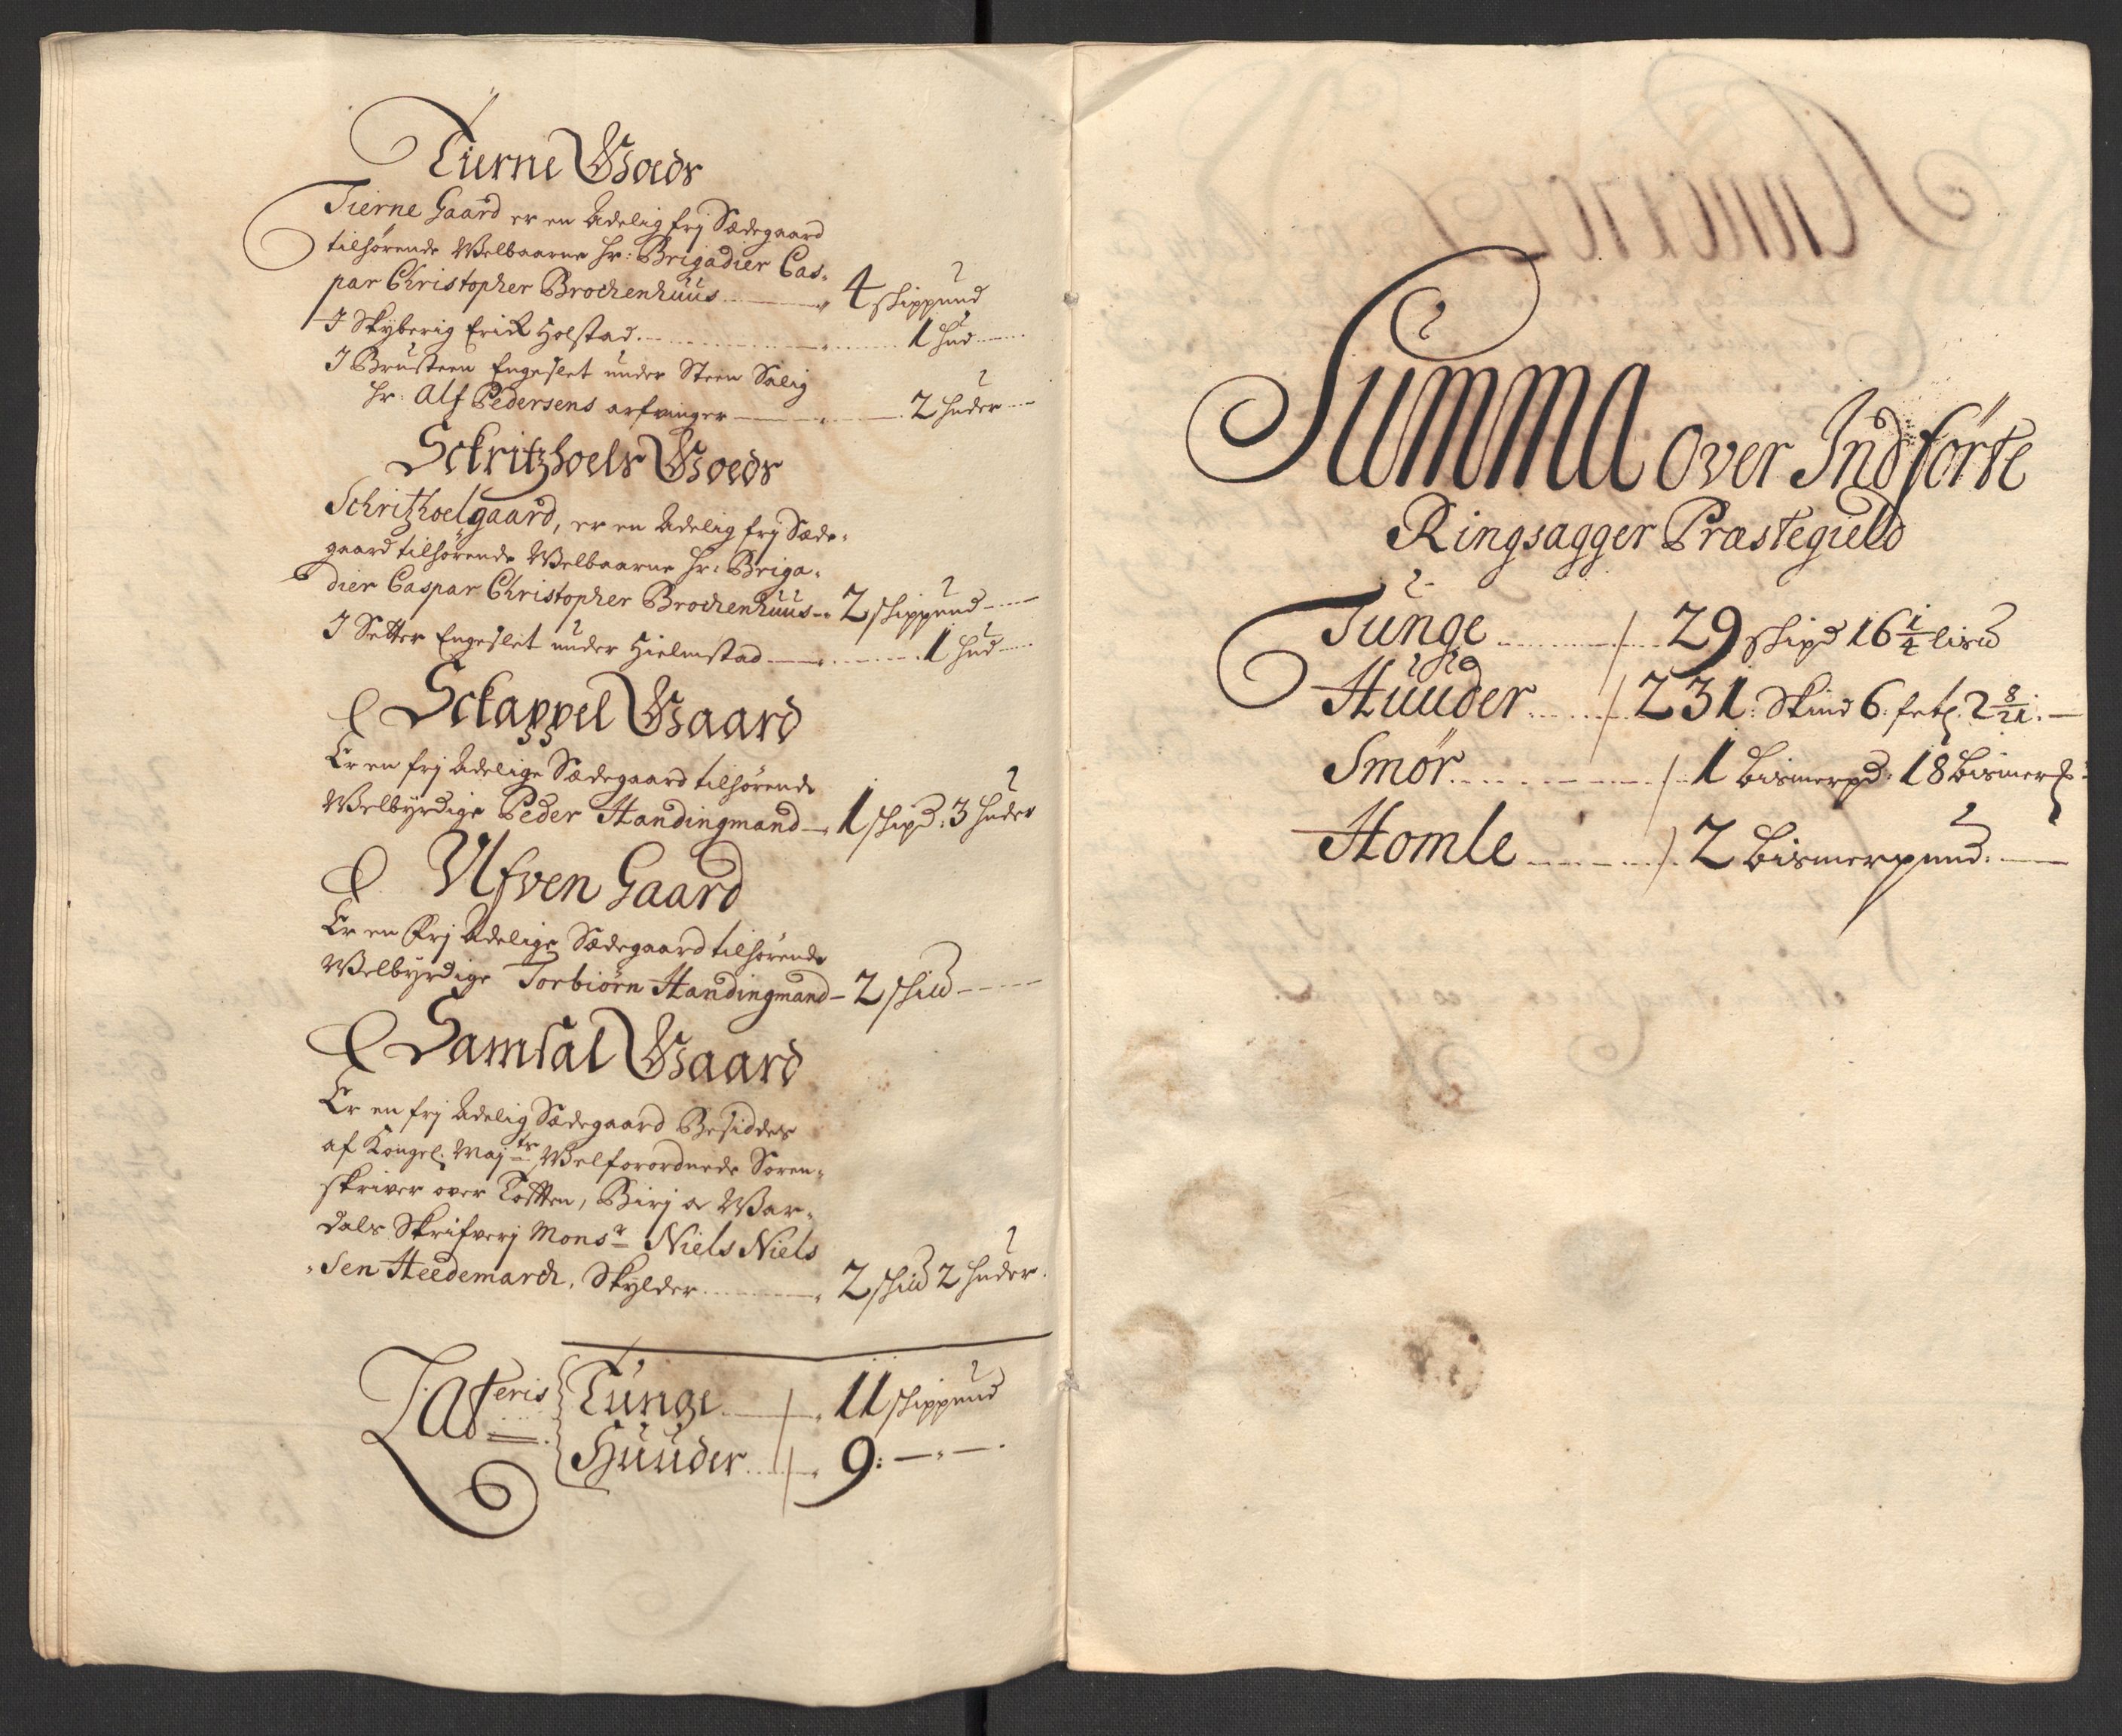 Tierne Goeds
Tierne Gaard er en Adelig frj Sædegaard
tilhørende Welbaarne Hr: Brigadier Cas-
par Christopher Brochenhuus 4 skippund
I Skyberig Erich Holstad 1 hud
I Brusteen Engeslet under Steen Salig
Hr: Alf Pedersens arfvinger 2 huder
Sckritzhoels Goeds
Schritzhoelgaard, er en Adelig frj Sæde-
gaard tilhørende Welbaarne Hr: Briga-
dier Caspar Christopher Brochenhuus 2 skippund
I Setter Engeslet under Hielmstad 1 hud
Sckappel Gaard
Er en frj Adelige Sædegaard tilhørende
Welbyrdige Peder Handingmand 1 skipd: 3 huder
Ulfven Gaard
Er en Frj Adelige Sædegaard tilhørende
Welbyrdige Torbiørn Handingmand 2 skipd
Samsal Gaard
Er en frj Adelig Sædegaard Besiddes
af Kongel: Majts Welforordnede Soren-
skriver over Totten, Birj oc War-
dals Skrifverj Monsr Niels Niels
sen Heedemarch, Skylder 2 skipd 2 huder
Lateris Tunge 11 skippund
Huuder 9:
Summa over Indførte
Ringsagger Præstegield
Tunge 29 skipd 16 1/4 lispd
Huuder 231: Skind 6: fetl: 2 8/21:
Smør 1 bismerpd: 18 bismerl:
Homle 2 bismerpund: